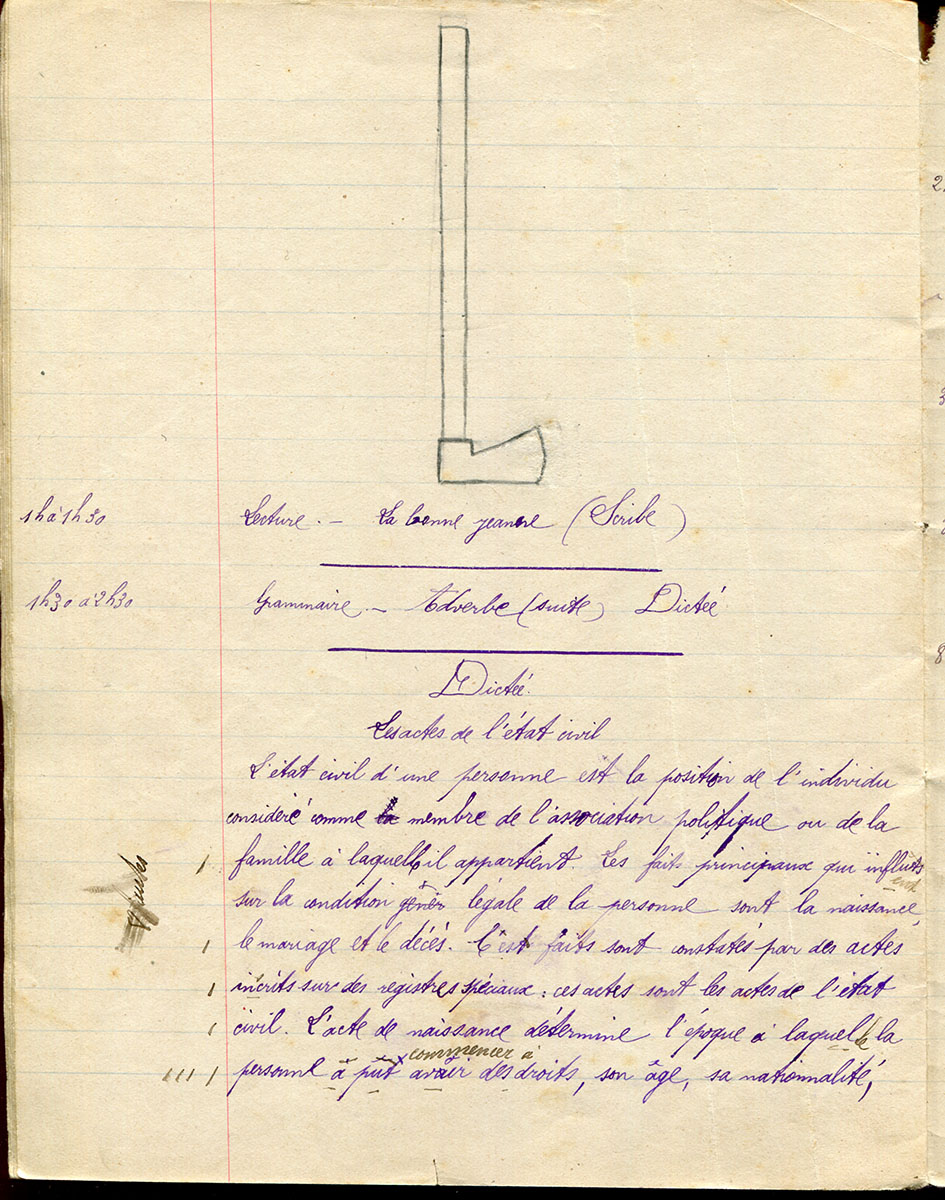 1h à 1h30 Lecture. - La bonne jeanne (Scribe)
1h30 à 2h30 Grammaire. - Adverbe (suite) Dictée
Dictée.
Les actes de l'état civil
L'état civil d'une personne est la position de l'individu
considéré comme la membre de l'association politique ou de la
famille à laquelle il appartient. Les faits principaux qui influts
ent
sur la condition génér légale de la personne sont la naissance,
le mariage et le décés. C'est faits sont constatés par des actes
incrits sur des registres spéciaux : ces actes sont les actes de l'état
civil. L'acte de naissance détermine l'époque à laquelle la
commencer à
personne à put avoir des droits, son âge, sa nationnalité,
fautes
2.
3
8